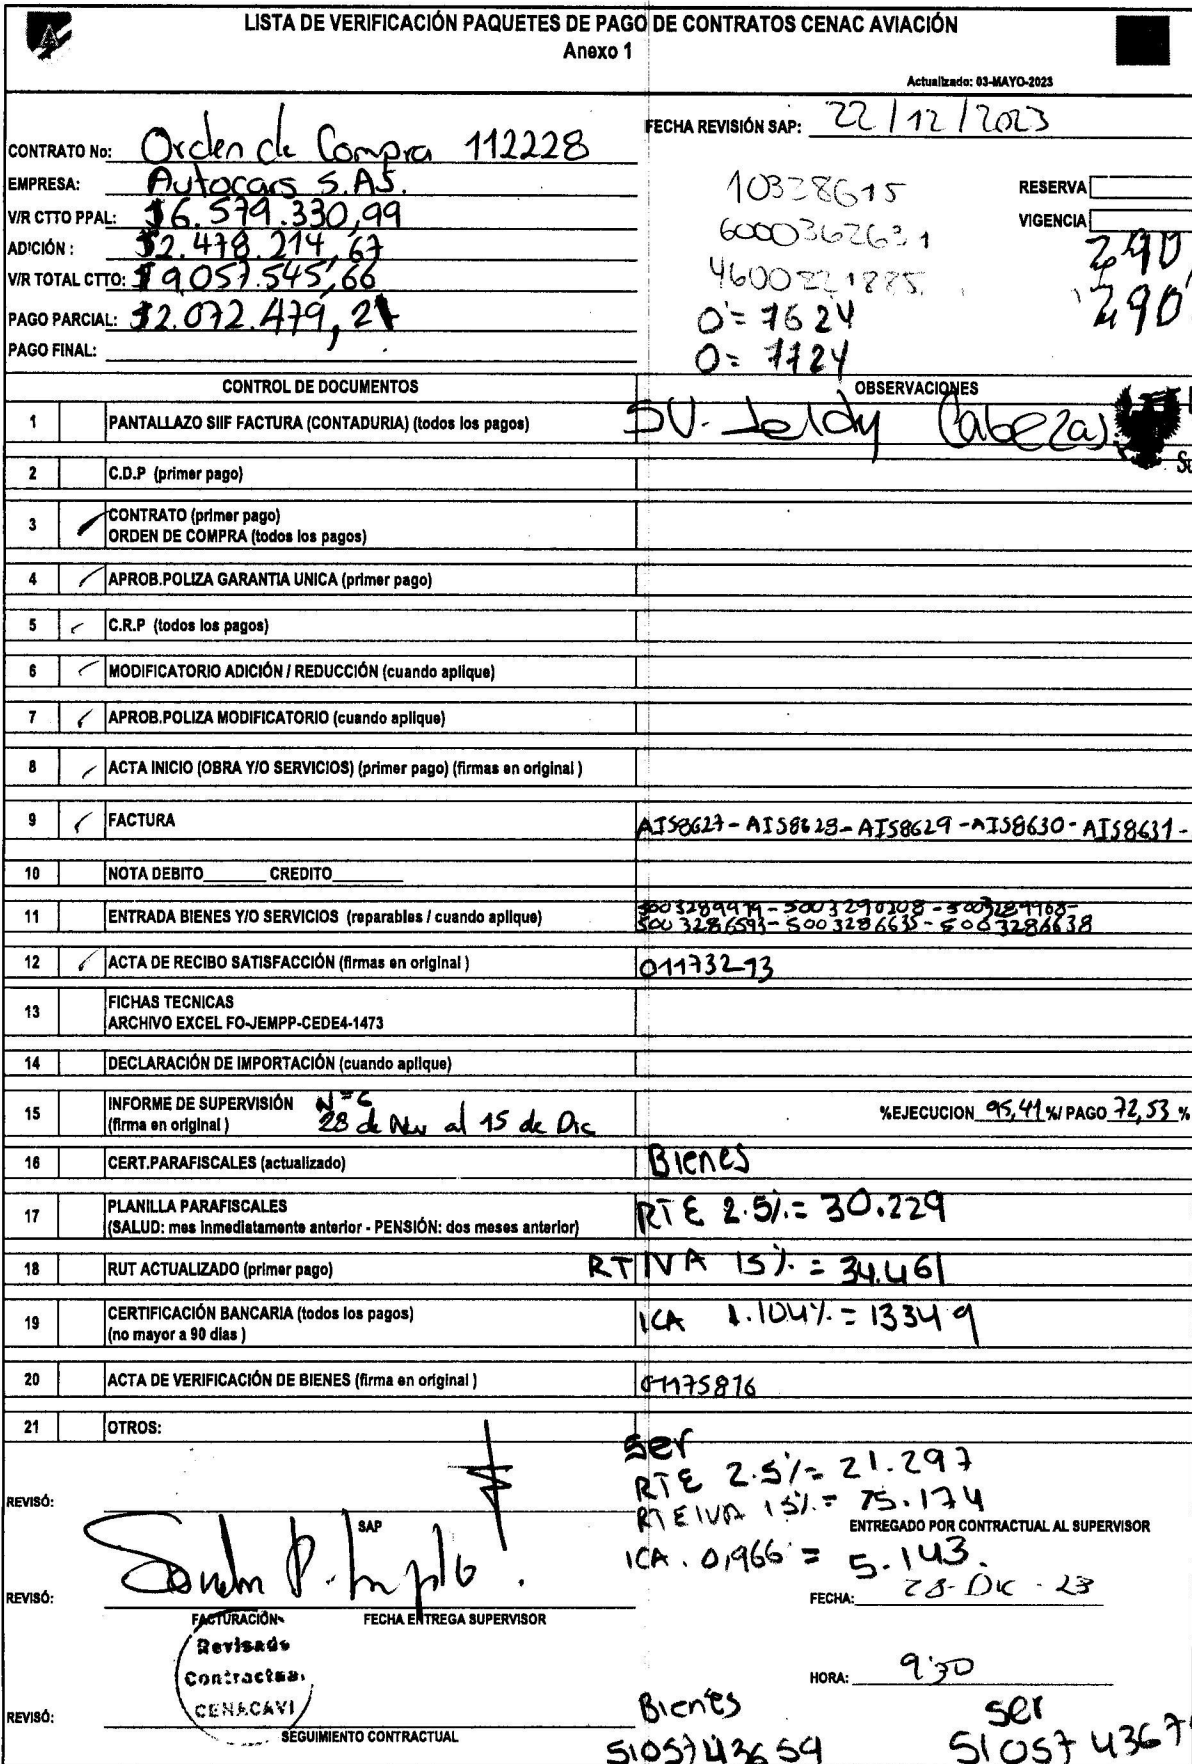 LISTA DE VERIFICACIÓN PAQUETES DE PAGO DE CONTRATOS CENAC AVIACIÓN
Anexo 1
Actualizado: 03-MAYO-2023
FECHA REVISIÓN SAP: 22/12/2023
CONTRATO No: Orden de Compra 112228
EMPRESA: Autocars S.AS.
V/R CTTO PPAL: $6.579.330,99
ADICIÓN : $2.478.214,67
V/R TOTAL CTTO: $9.057.545,66
PAGO PARCIAL: $2.072.479,21
PAGO FINAL:
10328615
6000362631
46000221885
O= 7624
O= 7724
RESERVA
VIGENCIA
290
290
CONTROL DE DOCUMENTOS
OBSERVACIONES
1 PANTALLAZO SIIF FACTURA (CONTADURIA) (todos los pagos) SV. Leidy Cabezas
2 C.D.P (primer pago)
3 CONTRATO (primer pago)
ORDEN DE COMPRA (todos los pagos)
4 APROB.POLIZA GARANTIA UNICA (primer pago)
5 C.R.P (todos los pagos)
6 MODIFICATORIO ADICIÓN / REDUCCIÓN (cuando aplique)
7 APROB.POLIZA MODIFICATORIO (cuando aplique)
8 ACTA INICIO (OBRA Y/O SERVICIOS) (primer pago) (firmas en original )
9 FACTURA AIS8627-AIS8628-AIS8629-AIS8630-AIS8631-
10 NOTA DEBITO CREDITO
11 ENTRADA BIENES Y/O SERVICIOS (reparables / cuando aplique)
5003286593-5003286635-5003286638
12 ACTA DE RECIBO SATISFACCIÓN (firmas en original ) 01173213
13 FICHAS TECNICAS
ARCHIVO EXCEL FO-JEMPP-CEDE4-1473
14 DECLARACIÓN DE IMPORTACIÓN (cuando aplique)
15 INFORME DE SUPERVISIÓN N=6
(firma en original ) 28 de Nov al 15 de Dic %EJECUCION 95,41 %/ PAGO 72,53 %
16 CERT.PARAFISCALES (actualizado) Bienes
17 PLANILLA PARAFISCALES
(SALUD: mes inmediatamente anterior - PENSIÓN: dos meses anterior) RTE 2.5%= 30.229
18 RUT ACTUALIZADO (primer pago) RTIVA 15%. = 34.461
19 CERTIFICACIÓN BANCARIA (todos los pagos)
(no mayor a 90 dias ) ICA 1.104%. = 13349
20 ACTA DE VERIFICACIÓN DE BIENES (firma en original ) 01175816
21 OTROS:
Ser
RTE 2.5%= 21.297
RTEIVA 15%.= 15.174
ICA. 0,966 = 5.143.
REVISÓ:
SAP
ENTREGADO POR CONTRACTUAL AL SUPERVISOR
REVISÓ:
FECHA: 28-Dic-23
FACTURACIÓN FECHA ENTREGA SUPERVISOR
Revisado
Contractual
CENACAVI
HORA: 9:30
REVISÓ:
SEGUIMIENTO CONTRACTUAL
Bienes
5105743659
Ser
510574367